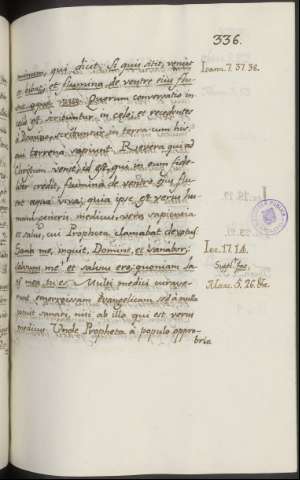 336.
minum, qui dicit. Si quis sitit, veniat
et bibat, et flumina de ventre ejus flu-
ent aquæ vivæ. Quorum conversatio in
cælis est scribuntur in cælo; et recedentes
a Domino, scribentur in terra cum his,
qui terrena sapiunt. Revera qui ad
Christum venit, id est, qui in eum fide-
liter credit, flumina de ventre ejus flu-
ent aquæ vivæ; quia ipse est verus hu-
mani generis medicus, vera sapientia
et salus, cui Propheta clamabat devotus.
Sana me, inquit, Domine, et sanabor;
salvum me et salvus ero; quoniam la
us mea tu es. Multi medici curave-
runt emorroissam Evangelicam sed a nullo
potuit sanari, nisi ab illo qui est verus
medicus. Unde Propheta a populo oppro-
bria
Ioann. 7. 37. 38.
Ier. 17. 14.
Marc. 5. 26. &c.